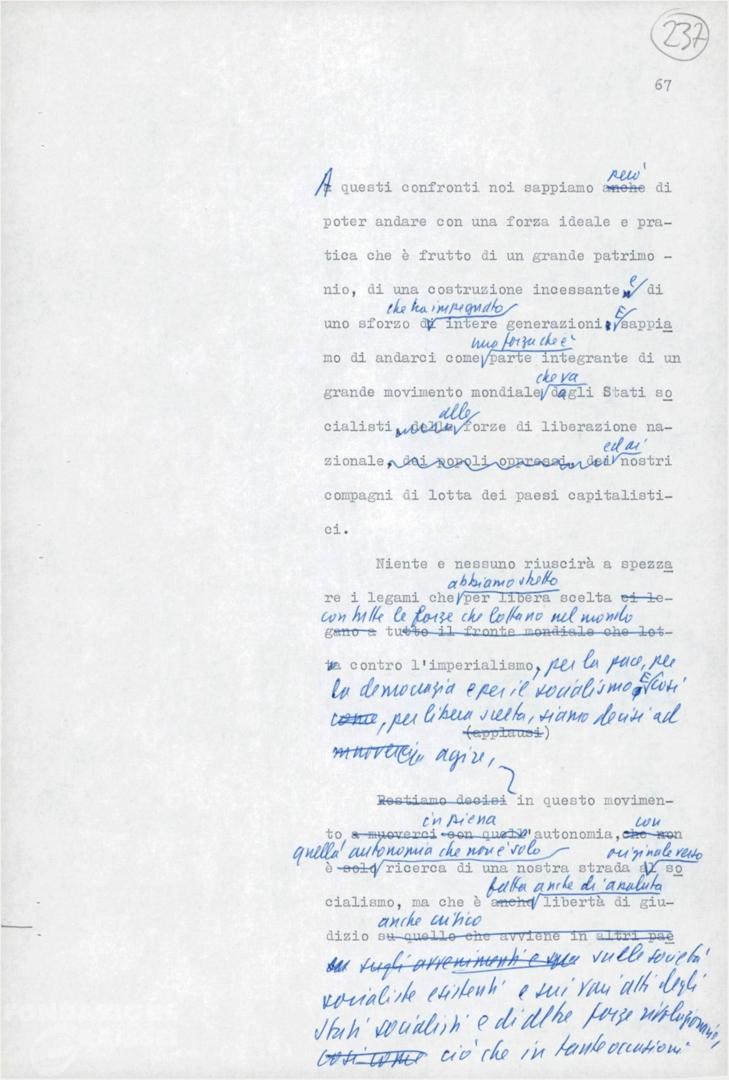 237
67
però
A questi confronti noi sappiamo anche di
poter andare con una forza ideale e pra-
tica che è frutto di un grande patrimo -
nio, di una costruzione incessante, e di
che ha impegnato
uno sforzo di intere generazioni. E sappia
una forza che è
mo di andarci come parte integrante di un
che va
grande movimento mondiale, dagli Stati so
alle
cialisti, delle forze di liberazione na-
ed ai
zionale, dei popoli oppressi, dei nostri
compagni di lotta dei paesi capitalisti-
ci.
Niente e nessuno riuscirà a spezza
abbiamo stretto
re i legami che per libera scelta ci le-
con tutte le forze che lottano nel mondo
gano a tutto il fronte mondiale che lot-
ta contro l'imperialismo, per la pace, per
la democrazia e per il socialismo. E così
come, per libera scelta, siamo decisi ad
(applausi)
muoverci agire,
Restiamo decisi in questo movimen-
in piena con
to a muoverci con quell'autonomia, che non
quella autonomia che non è solo originale verso
è solo ricerca di una nostra strada al so
fatta anche di assoluta
cialismo, ma che è anche libertà di giu-
anche critico
dizio su quello che avviene in altri pae
sugli avvenimenti e sulle società
socialiste esistenti e sui vari atti degli
Stati socialisti e di altre forze rivoluzionarie,
così come ciò che in tante occasioni